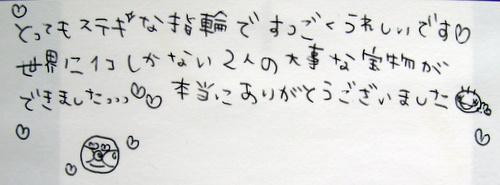 とってもステキな指輪ですっごくうれしいです♡
世界に1コしかない2人の大事な宝物が
できましたっっっ♡♡ 本当にありがとうございました